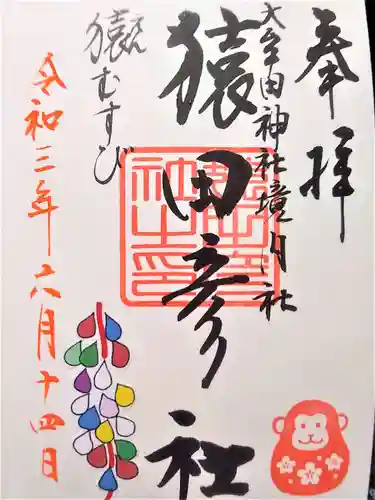 奉拝
大牟田神社境内社
猿田彦社
えん
猿むすび
令和三年六月十四日